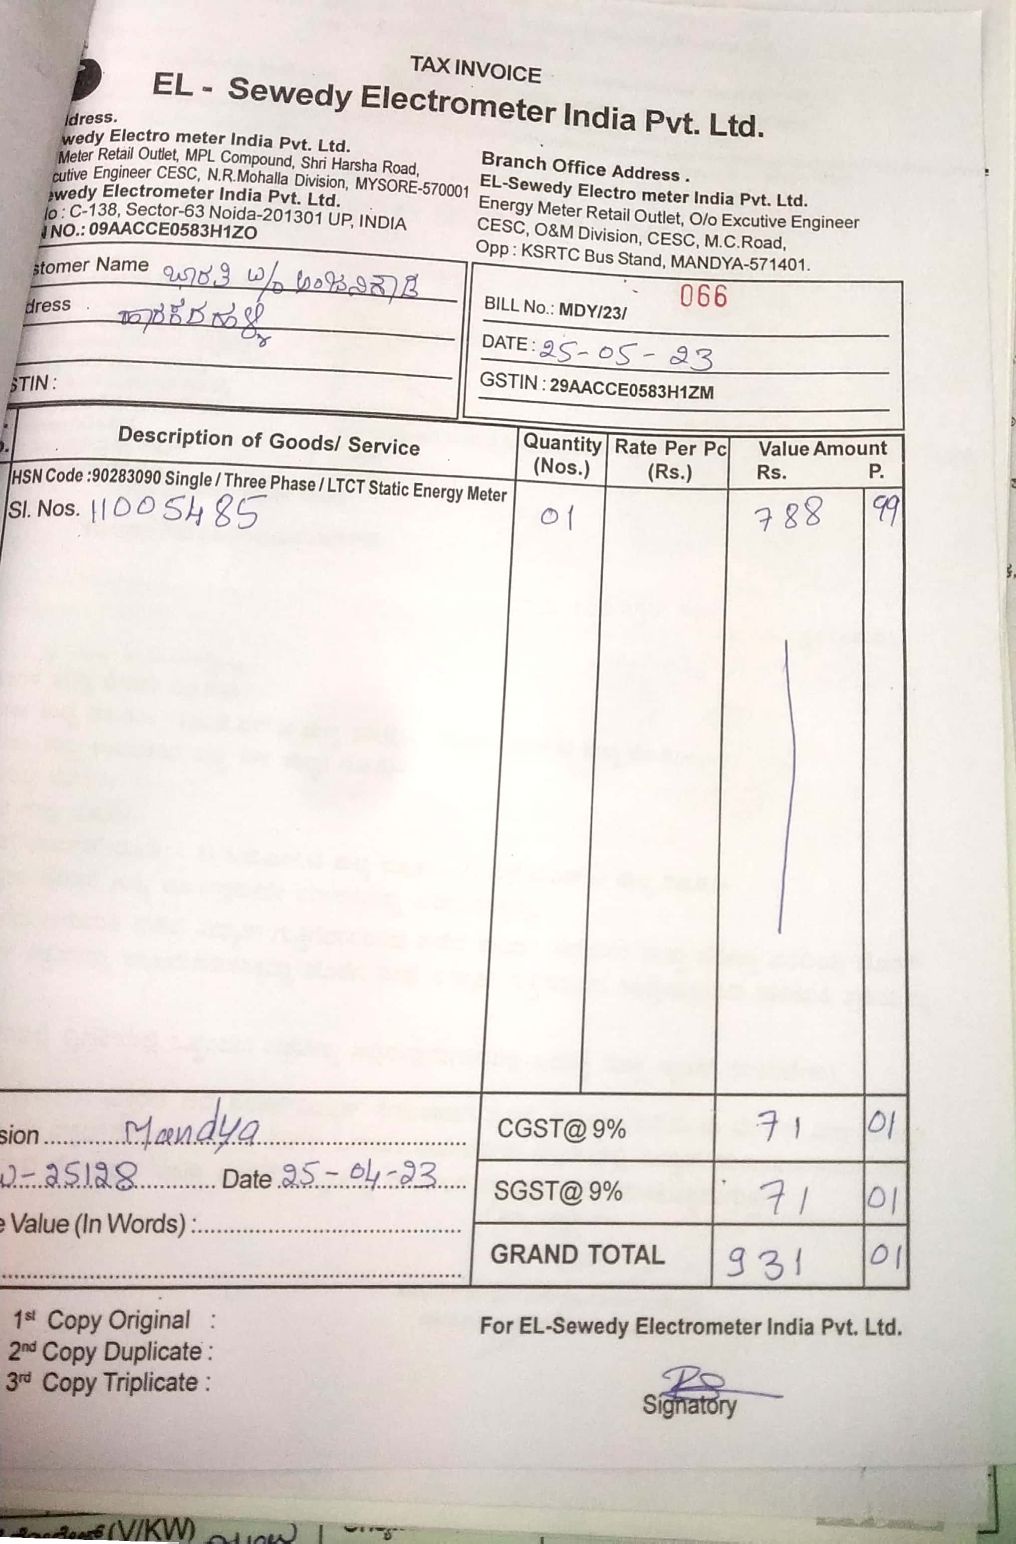 TAX INVOICE
EL - Sewedy Electrometer India Pvt. Ltd.
dress.
wedy Electro meter India Pvt. Ltd.
Meter Retail Outlet, MPL Compound, Shri Harsha Road,
cutive Engineer CESC, N.R.Mohalla Division, MYSORE-570001
ewedy Electrometer India Pvt. Ltd.
lo : C-138, Sector-63 Noida-201301 UP, INDIA
NO.: 09AACCE0583H1ZO
Branch Office Address .
EL-Sewedy Electro meter India Pvt. Ltd.
Energy Meter Retail Outlet, O/o Excutive Engineer
CESC, O&M Division, CESC, M.C.Road,
Opp : KSRTC Bus Stand, MANDYA-571401.
stomer Name
dress
STIN :
BILL No.: MDY/23/ 066
DATE : 25-05-23
GSTIN : 29AACCE0583H1ZM
Description of Goods/ Service Quantity (Nos.) Rate Per Pc (Rs.) Value Amount Rs. P.
HSN Code :90283090 Single / Three Phase / LTCT Static Energy Meter
Sl. Nos. 11005485 01 788 99
sion Mandya CGST@ 9% 71 01
-25128 Date 25-04-23 SGST@ 9% 71 01
e Value (In Words) :
GRAND TOTAL 931 01
1st Copy Original :
2nd Copy Duplicate :
3rd Copy Triplicate :
For EL-Sewedy Electrometer India Pvt. Ltd.
Signatory
(V/KW)